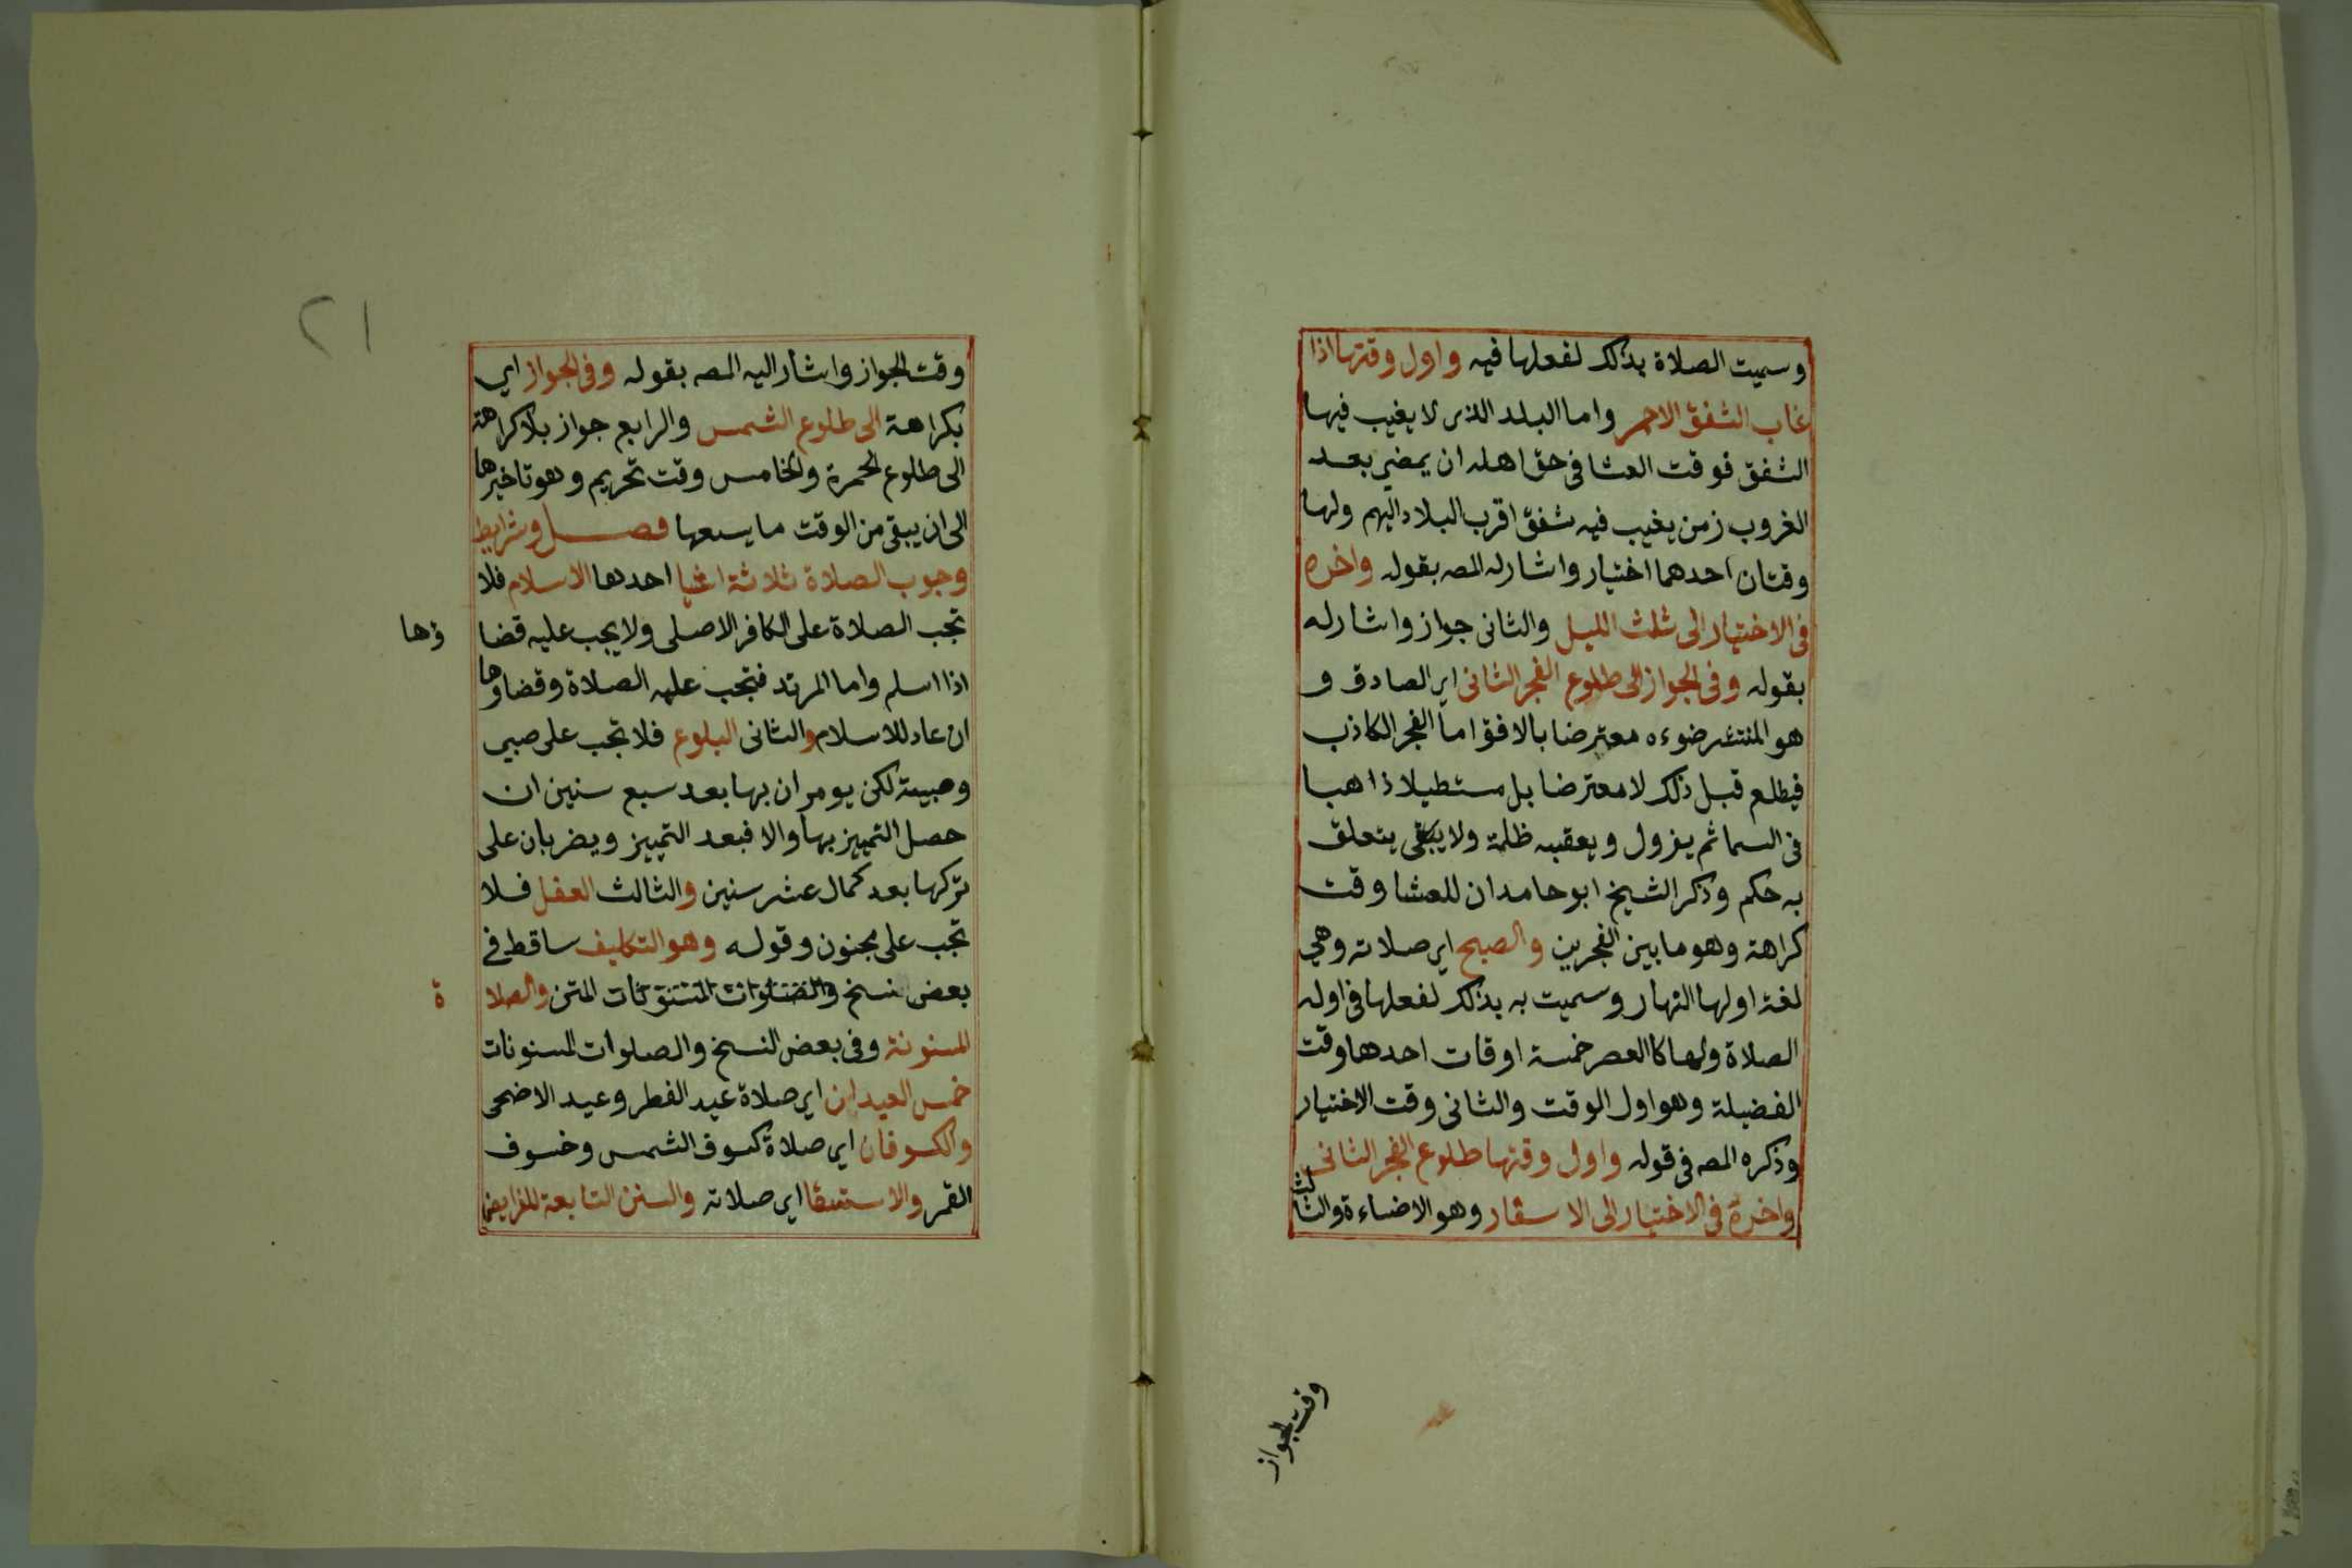 وسميت الصلاة بذلك لفعلها فيه واول وقتها اذا
غاب الشفق الاحمر واما البلد الذى لا يغيب فيها
الشفق فوقت العشا فى حق اهله ان يمضي بعد
الغروب زمن يغيب فيه شفق اقرب البلاد اليهم ولها
وقتان احدهما اختيار واشار له المصـ بقوله واخره
فى الاختيار الى ثلث الليل والثانى جواز واشار له
بقوله وفى الجواز الى طلوع الفجر الثانى اي الصادق و
هو المنتشر ضوءه معترضا بالافق اما الفجر الكاذب
فيطلع قبل ذلك لا معترضا بل مستطيلا ذاهبا
فى السما ثم يزول ويعقبه ظلمة ولا يبقى يتعلق
به حكم وذكر الشيخ ابو حامد ان للعشا وقت
كراهة وهو ما بين الفجرين والصبح اي صلاته وهي
لغة اولها النهار وسميت به بذلك لفعلها فى اوله
الصلاة ولها كالعصر خمسة اوقات احدها وقت
الفضيلة وهو اول الوقت والثانى وقت الاختيار
وذكره المصـ فى قوله واول وقتها طلوع الفجر الثانى
واخرة فى الاختيار الى الاسفار وهو الاضاءة والثالث
وقت الجواز
٢١
وقت الجواز واشار اليه المصـ بقوله وفى الجواز اي
بكراهة الى طلوع الشمس والرابع جواز بلا كراهة
الى طلوع الحمرة والخامس وقت تحريم وهو تاخيرها
الى ان يبقى من الوقت ما يسعها فصل وشرايط
وجوب الصلاة ثلاثة اشيا احدها الاسلام فلا
تجب الصلاة على الكافر الاصلى ولا يجب عليه قضا ؤها
اذا اسلم واما المرتد فتجب عليه الصلاة وقضاوها
ان عاد للاسلام والثانى البلوغ فلا تجب على صبي
وصبية لكن يومران بها بعد سبع سنين ان
حصل التمييز بها والا فبعد التمييز ويضربان على
تركها بعد كمال عشر سنين والثالث العقل فلا
تجب على مجنون وقوله وهو التكليف ساقط في
بعض نسخ المتن والصلا ة
المسنونة وفى بعض النسخ والصلوات المسنونات
خمس العيدان اي صلاة عيد الفطر وعيد الاضحى
والكسوفان اي صلاة كسوف الشمس وخسوف
القمر والاستسقا اي صلاته والسنن التابعة للفرايض